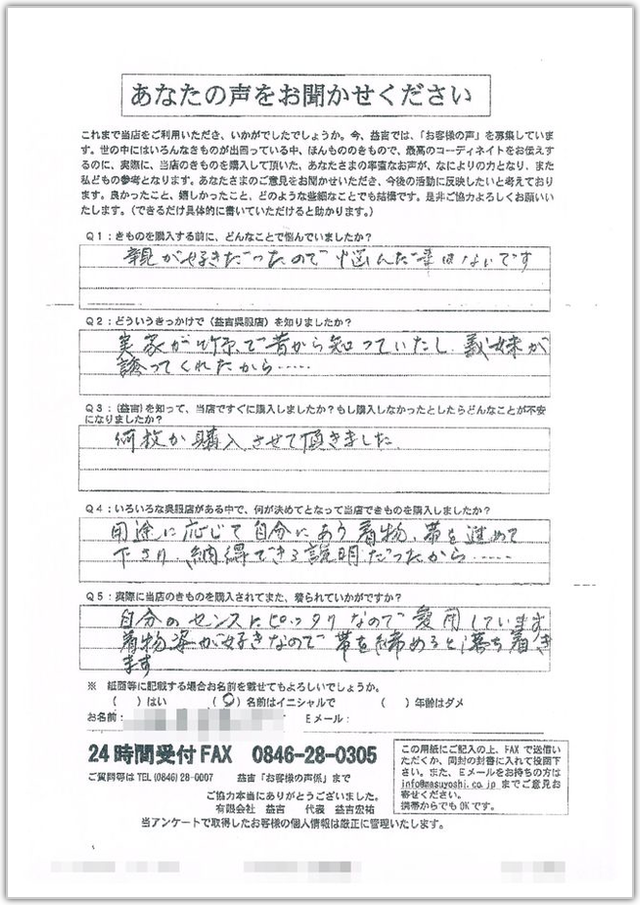 あなたの声をお聞かせください
これまで当店をご利用いただき、いかがでしたでしょうか。今、益吉では、「お客様の声」を募集していま
す。世の中にはいろんなきものが出回っている中、ほんもののきもので、最高のコーディネイトをお伝えす
るのに、実際に、当店のきものを購入して頂いた、あなたさまの率直なお声が、なによりの力となり、また
私どもの参考となります。あなたさまのご意見をお聞かせいただき、今後の活動に反映したいと考えており
ます。良かったこと、嬉しかったこと、どのような些細なことでも結構です。是非ご協力よろしくお願いい
たします。(できるだけ具体的に書いていただけると助かります。)
Q1:きものを購入する前に、どんなことで悩んでいましたか?
親が好きだったので悩んだ事はないです
Q2:どういうきっかけで(益吉呉服店)を知りましたか?
実家が竹原で昔から知っていたし、義妹が
誘ってくれたから……
Q3:(益吉)を知って、当店ですぐに購入しましたか?もし購入しなかったとしたらどんなことが不安
になりましたか?
何枚か購入させて頂きました。
Q4:いろいろな呉服店がある中で、何が決めてとなって当店できものを購入しましたか?
用途に応じて自分にあう着物、帯を進めて
下さり、納得できる説明だったから……
Q5:実際に当店のきものを購入されてまた、着られていかがですか?
自分のセンスにピッタリなので愛用しています
着物姿が好きなので帯を締めると落ち着き
ます
※ 紙面等に記載する場合お名前を載せてもよろしいでしょうか。
( )はい (○)名前はイニシャルで ( )年齢はダメ
お名前: Eメール:
24時間受付FAX 0846-28-0305
ご質問等は TEL (0846) 28-0007 益吉「お客様の声係」まで
ご協力本当にありがとうございました。
有限会社 益吉 代表 益吉宏祐
当アンケートで取得したお客様の個人情報は厳正に管理いたします。
この用紙にご記入の上、FAX で送信い
ただくか、同封の封書に入れて投函下
さい。また、Eメールをお持ちの方は
info@masuyoshi.co.jp までご意見お
寄せください。
携帯からでもOKです。